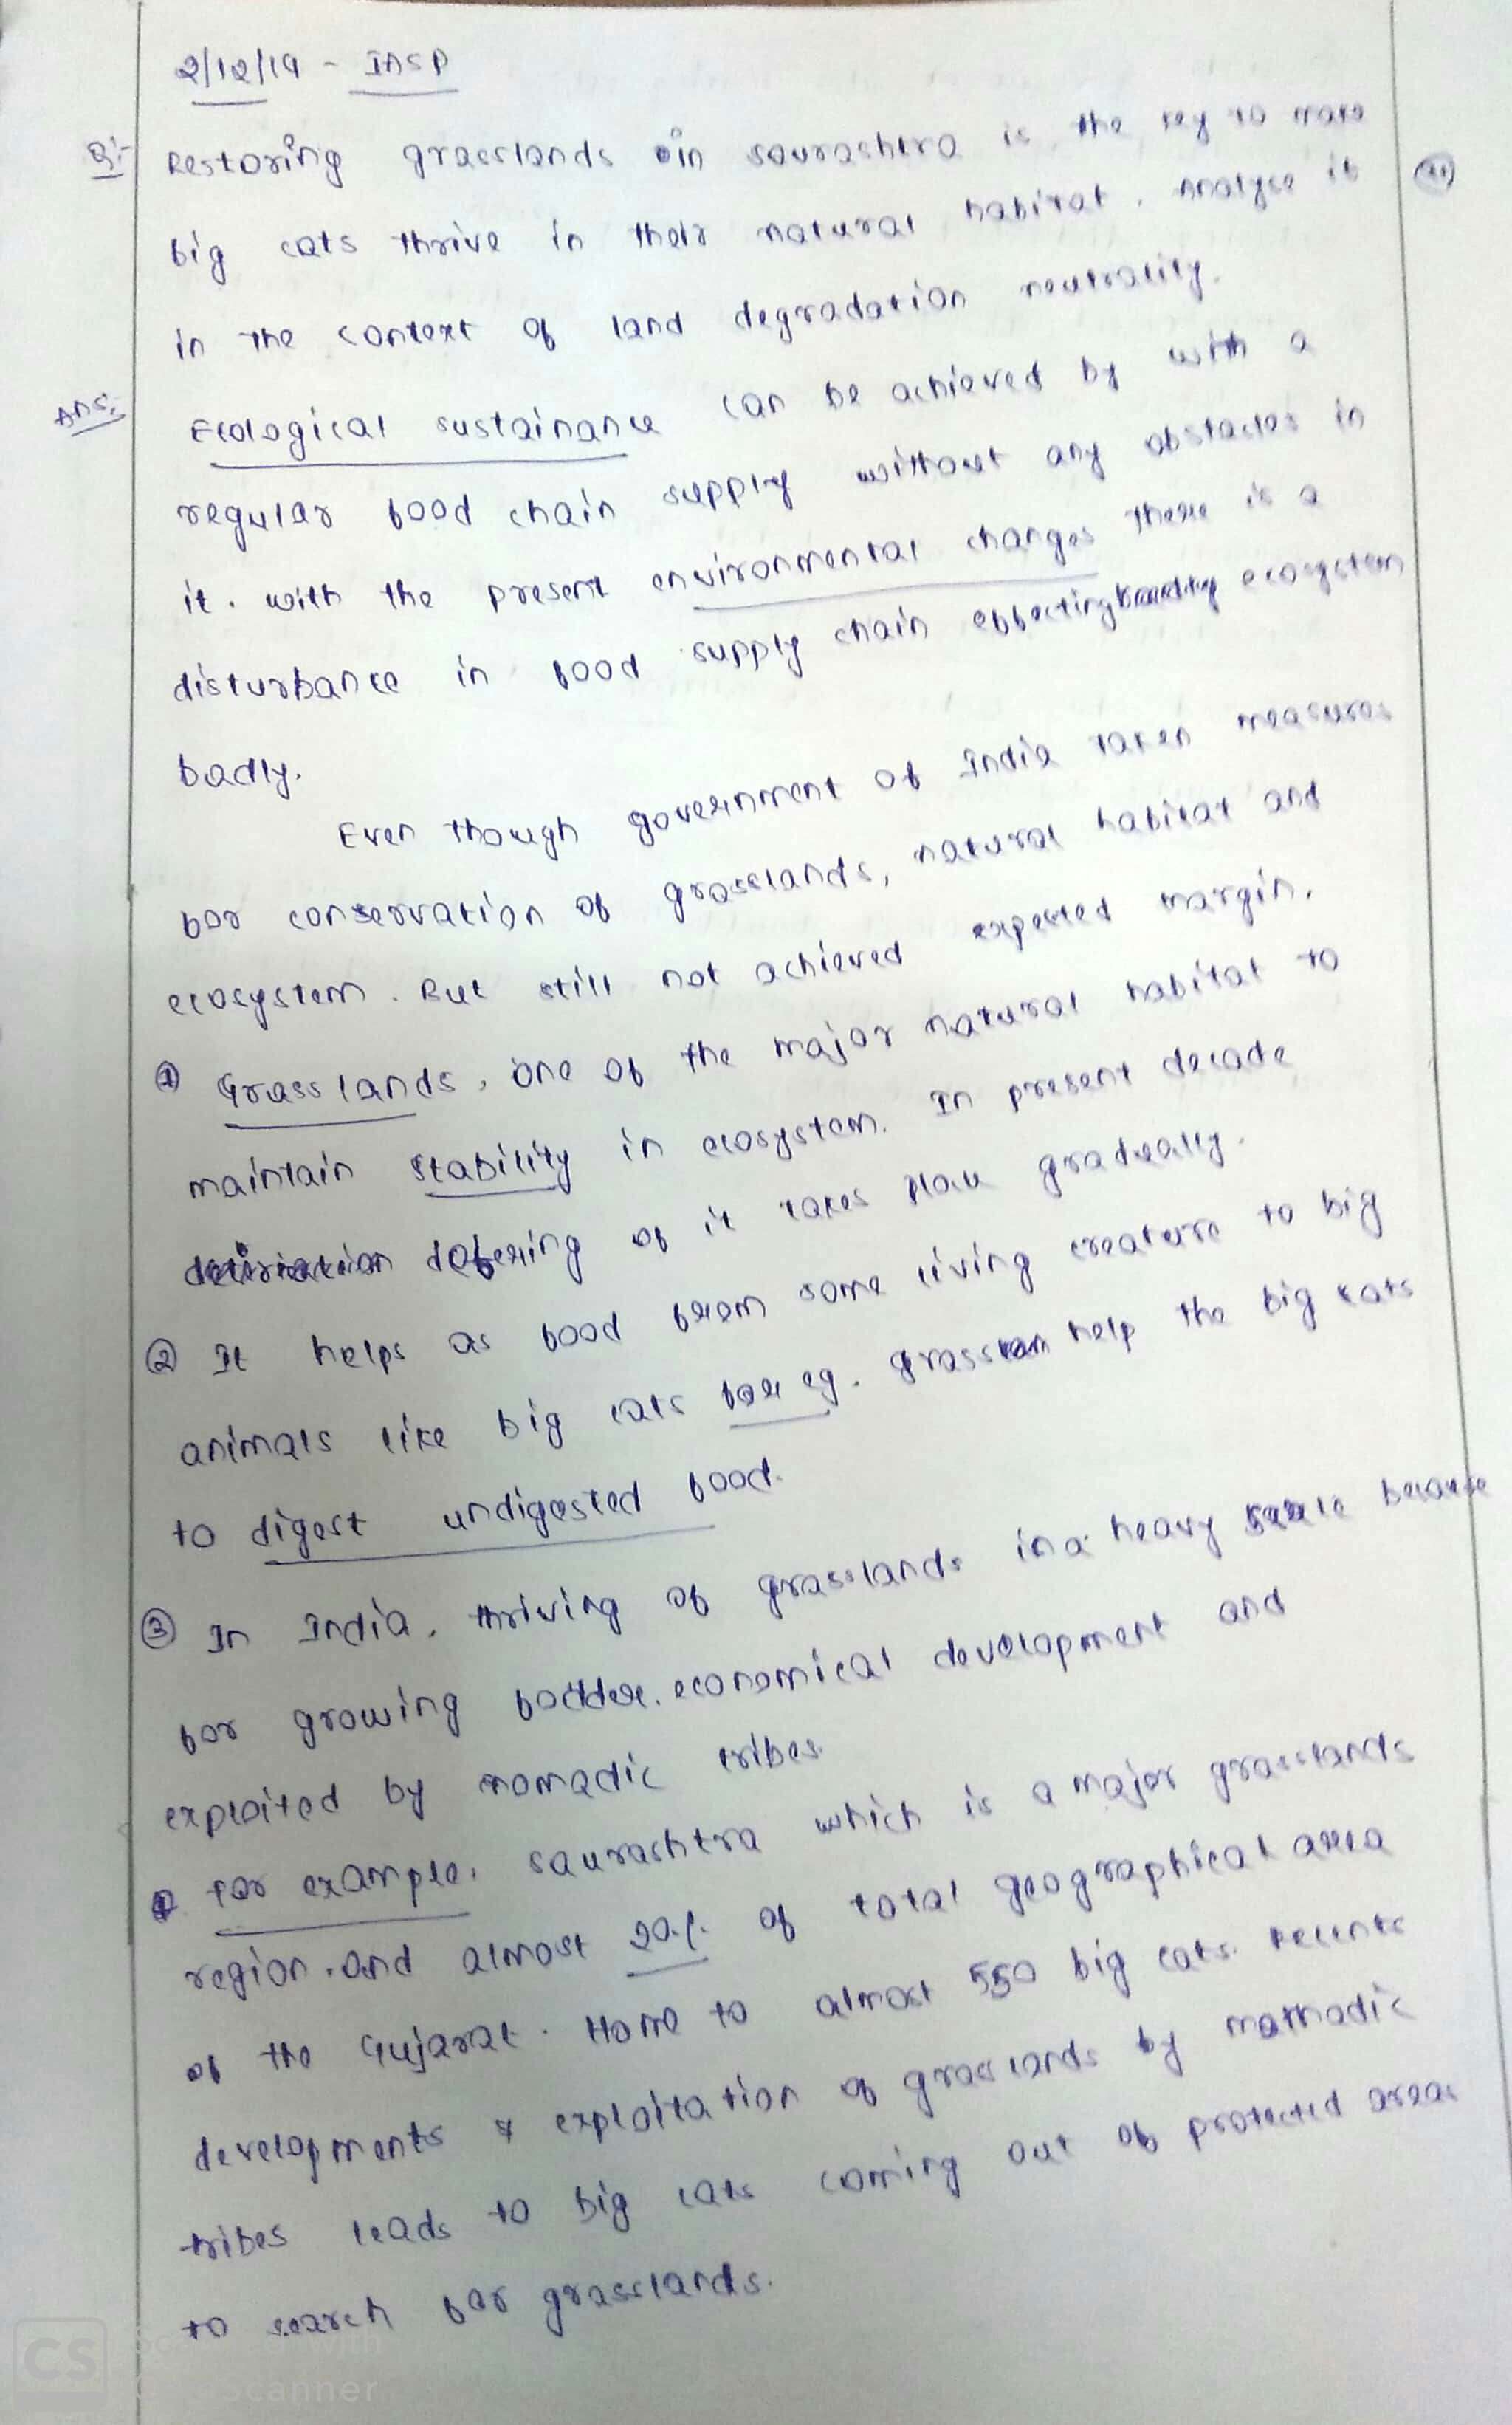 2/12/19 - INSP
Q:- Restoring grasslands in sourashtra is the key to make
big cats thrive in their natural habitat. Analyse it
in the context of land degradation neutrality.
Ans:- Ecological sustainance can be achieved by with a
regular food chain supply without any obstacles in
it. with the present environmental changes there is a
disturbance in food supply chain effecting ecosystem
badly.
Even though government of India taken measures
for conservation of grasslands, natural habitat and
ecosystem. But still not achieved expected margin.
① Grass lands, one of the major natural habitat to
maintain stability in ecosystem. In present decade
of it takes place gradually.
② It helps as food from some living creature to big
animals like big cats for eg. grass help the big cats
to digest undigested food.
③ In India, thriving of grasslands in a heavy because
for growing fodder, economical development and
exploited by nomadic tribes.
For example, saurashtra which is a major grasslands
region. and almost 20% of total geographical area
of the Gujarat. Home to almost 550 big cats. Recents
developments & exploitation of grass lands by mothadic
tribes leads to big cats coming out of protected areas
to search for grasslands.
CS
Scanner